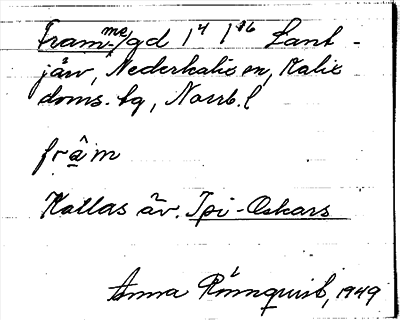 Framme/gd 1⁴ 1¹⁶ Lant-
järv, Nederkalix sn, Kalix
doms. tg, Norrb. l
frâm
Kallas äv. Ipi-Oskars
Anna Rönnqvist, 1949